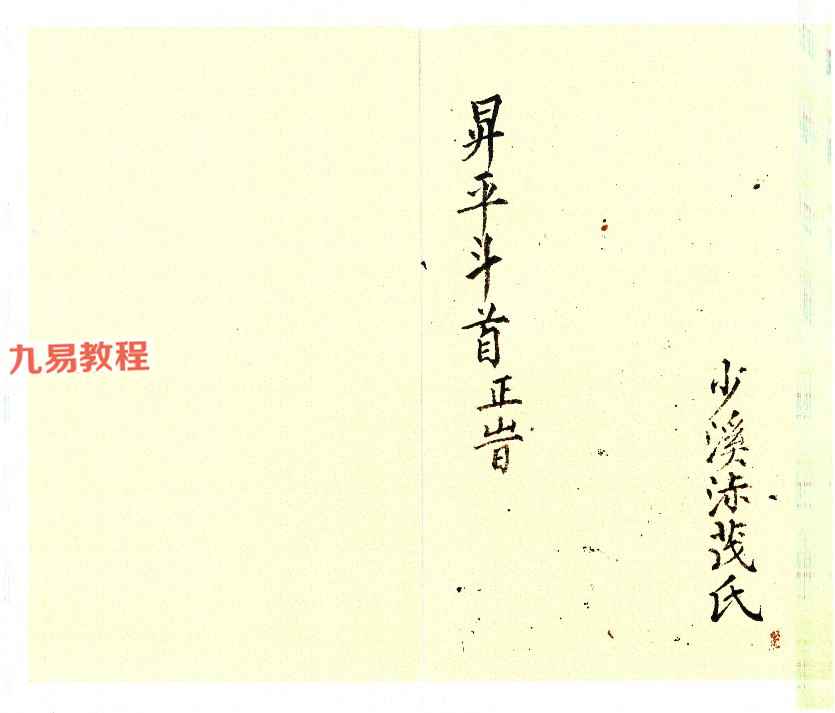 少溪茂氏
昇平斗首正旹
九易教程